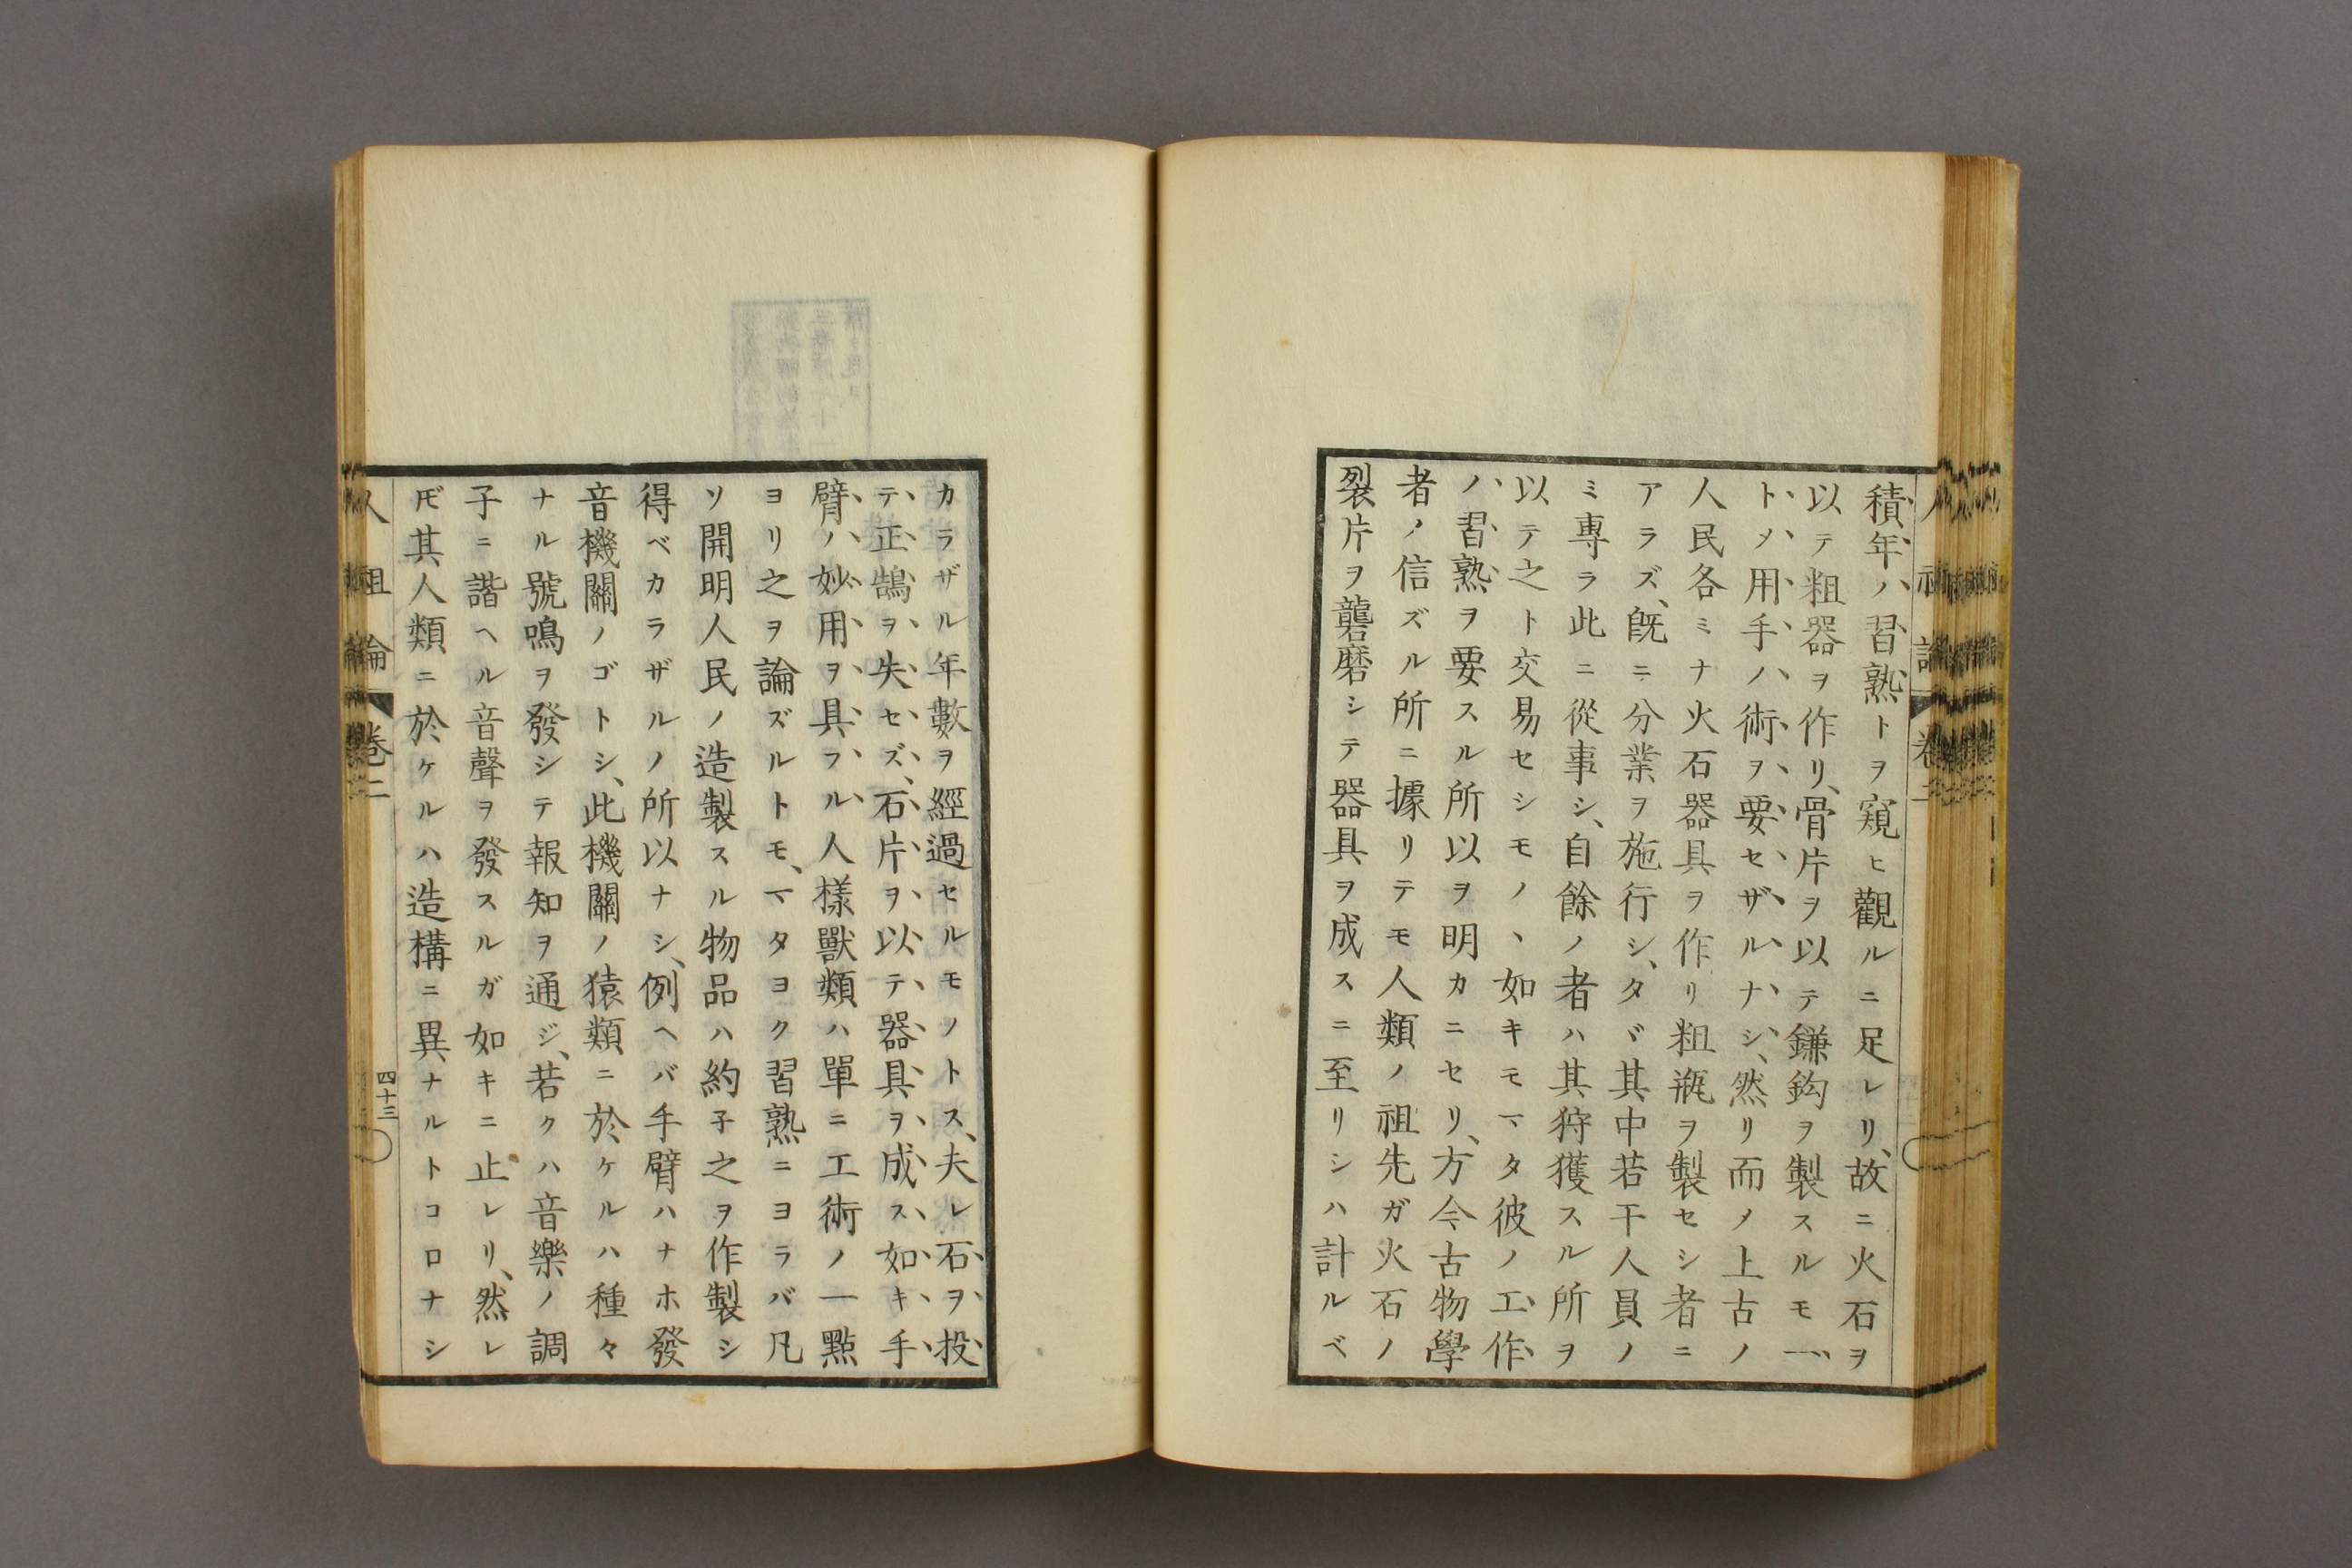 積年ノ習熟トヲ窺ヒ觀ルニ足レリ、故ニ火石ヲ
以テ粗器ヲ作リ、骨片ヲ以テ鎌鈎ヲ製スルモ一
トメ用手ノ術ヲ要セザルナシ、然リ而メ上古ノ
人民各ミナ火石器具ヲ作リ粗瓶ヲ製セシ者ニ
アラズ、既ニ分業ヲ施行シ、タヾ其中若干人員ノ
ミ專ラ此ニ從事シ、自餘ノ者ハ其狩獲スル所ヲ
以テ之ト交易セシモノヽ如キモマタ彼ノ工作
ノ習熟ヲ要スル所以ヲ明カニセリ、方今古物學
者ノ信ズル所ニ據リテモ人類ノ祖先ガ火石ノ
裂片ヲ礱磨シテ器具ヲ成スニ至リシハ計ルベ
カラザル年數ヲ經過セルモノトス、夫レ石ヲ投
テ正鵠ヲ失セズ、石片ヲ以テ器具ヲ成ス如キ手
臂ノ妙用ヲ具フル人樣獸類ハ單ニ工術ノ一點
ヨリ之ヲ論ズルトモ、マタヨク習熟ニヨラバ凡
ソ開明人民ノ造製スル物品ハ約子之ヲ作製シ
得ベカラザルノ所以ナシ、例ヘバ手臂ハナホ發
音機關ノゴトシ、此機關ノ猿類ニ於ケルハ種々
ナル號鳴ヲ發シテ報知ヲ通ジ、若クハ音樂ノ調
子ニ諧ヘル音聲ヲ發スルガ如キニ止レリ、然レ
𪜈其人類ニ於ケルハ造構ニ異ナルトコロナシ
人祖論 卷二
四十三